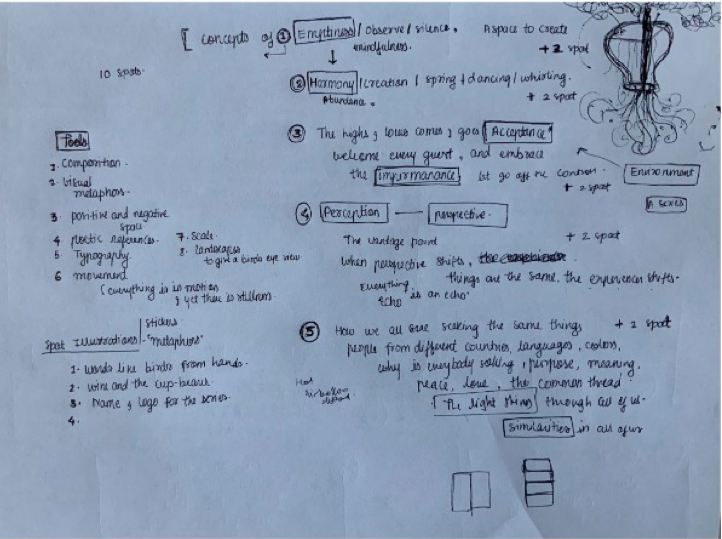 [ concepts of ① Emptiness / Observe / silence. A space to create
mindfulness. + 2 spot
10 spots.
② Harmony / creation / spring + dancing / whirling.
Abundance. + 2 spot
③ The highs & lows comes & goes Acceptance
welcome every guest, and embrace
the impurmanance let go off the control.
+ 2 spot
Environment
A series
④ Perception — perspective.
The vantage point + 2 spot
When perspective shifts,
things are the same, the experiences shifts.
Everything is an echo
Echo
⑤ How we all are seeking the same things + 2 spot
people from different countries, languages, colors,
why is everybody seeking, purpose, meaning,
peace, love, the common thread.
The light through all of us.
Similarities in all of us
Tools
1. Composition.
2. Visual
metaphors.
3. positive and negative
space
4. poetic references.
5 Typography
6 movement
( everything is in motion
& yet there is stillness
7. Scale.
8. landscapes
to give a birds eye view
Spot Illustrations / stickers
- "metaphors"
1. Words like birds from hands.
2. wine and the cup-bearer
3. Name & logo for the series.
4.
Hot
air balloon